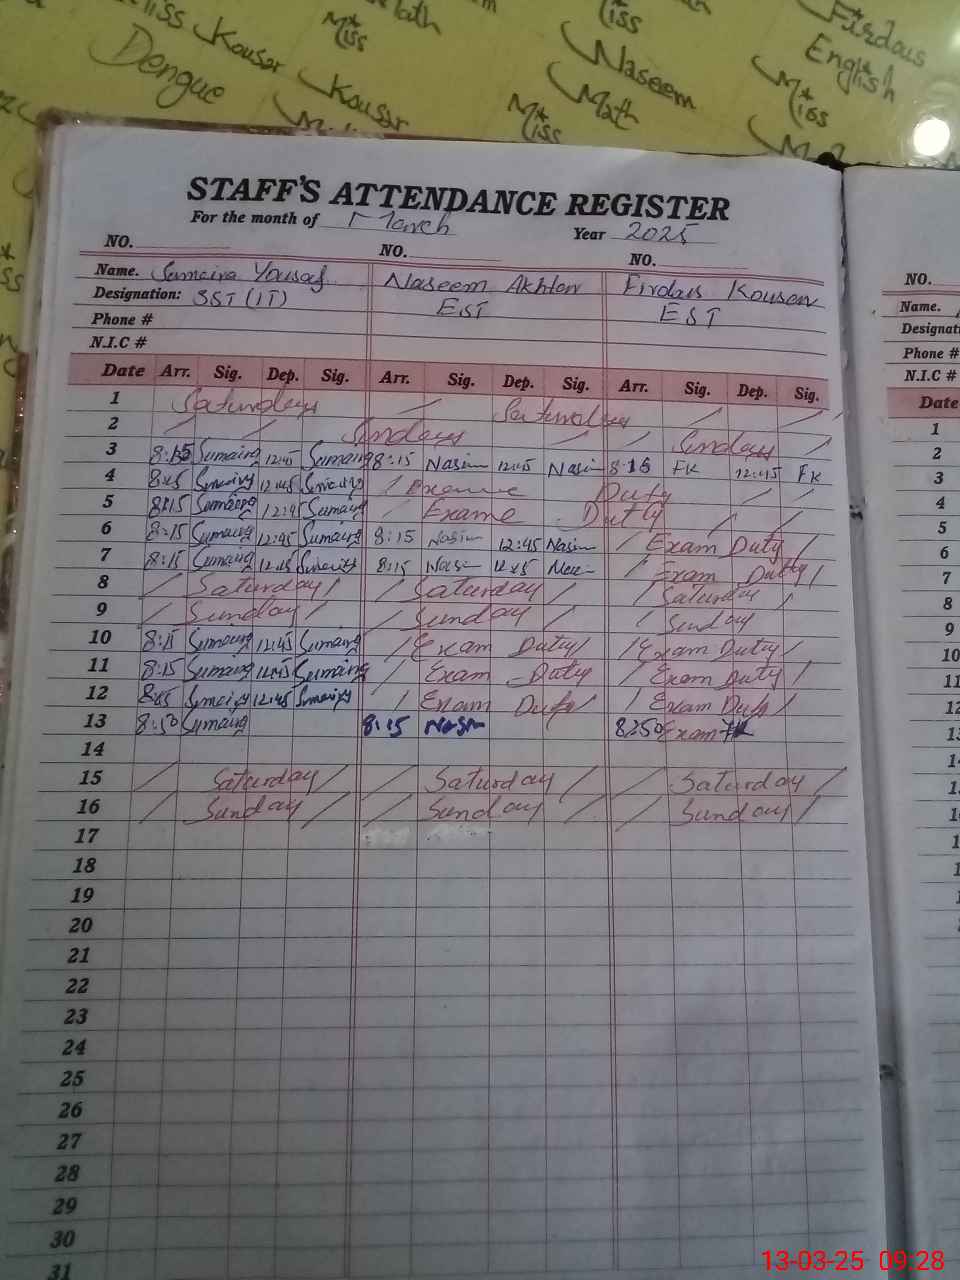 Miss Kousar
Dengue
Math
Miss
Kousar
Miss
Naseem
Math
Miss
Firdous
English
Miss
STAFF'S ATTENDANCE REGISTER
For the month of March Year 2025
NO. NO. NO.
Name. Sumaira Yousaf Naseem Akhter Firdous Kousar
Designation: SST (IT) EST EST
Phone #
N.I.C #
Date Arr. Sig. Dep. Sig. Arr. Sig. Dep. Sig. Arr. Sig. Dep. Sig.
1 Saturdays Saturdays
2 Sundays Sundays
3 8:15 Sumaira 12:45 Sumaira 8:15 Nasim 12:45 Nasim 8:15 FK 12:45 FK
4 8:15 Sumaira 12:45 Sumaira Duty
5 8:15 Sumaira 12:45 Sumaira Exame Duty
6 8:15 Sumaira 12:45 Sumaira 8:15 Nasim 12:45 Nasim Exam Duty
7 8:15 Sumaira 12:45 Sumaira 8:15 Nasim 12:45 Exam Duty
8 Saturday Saturday Saturday
9 Sunday Sunday Sunday
10 8:15 Sumaira 12:45 Sumaira Exam Duty Exam Duty
11 8:15 Sumaira 12:45 Sumaira Exam Duty Exam Duty
12 8:15 Sumaira 12:45 Sumaira Exam Duty Exam Duty
13 8:50 Sumaira 8:15 Nasim 8:50 Exam FK
14
15 Saturday Saturday Saturday
16 Sunday Sunday Sunday
17
18
19
20
21
22
23
24
25
26
27
28
29
30
31
NO.
Name.
Phone #
N.I.C #
Date
1
2
3
4
5
6
7
8
9
10
11
13-03-25 09:28